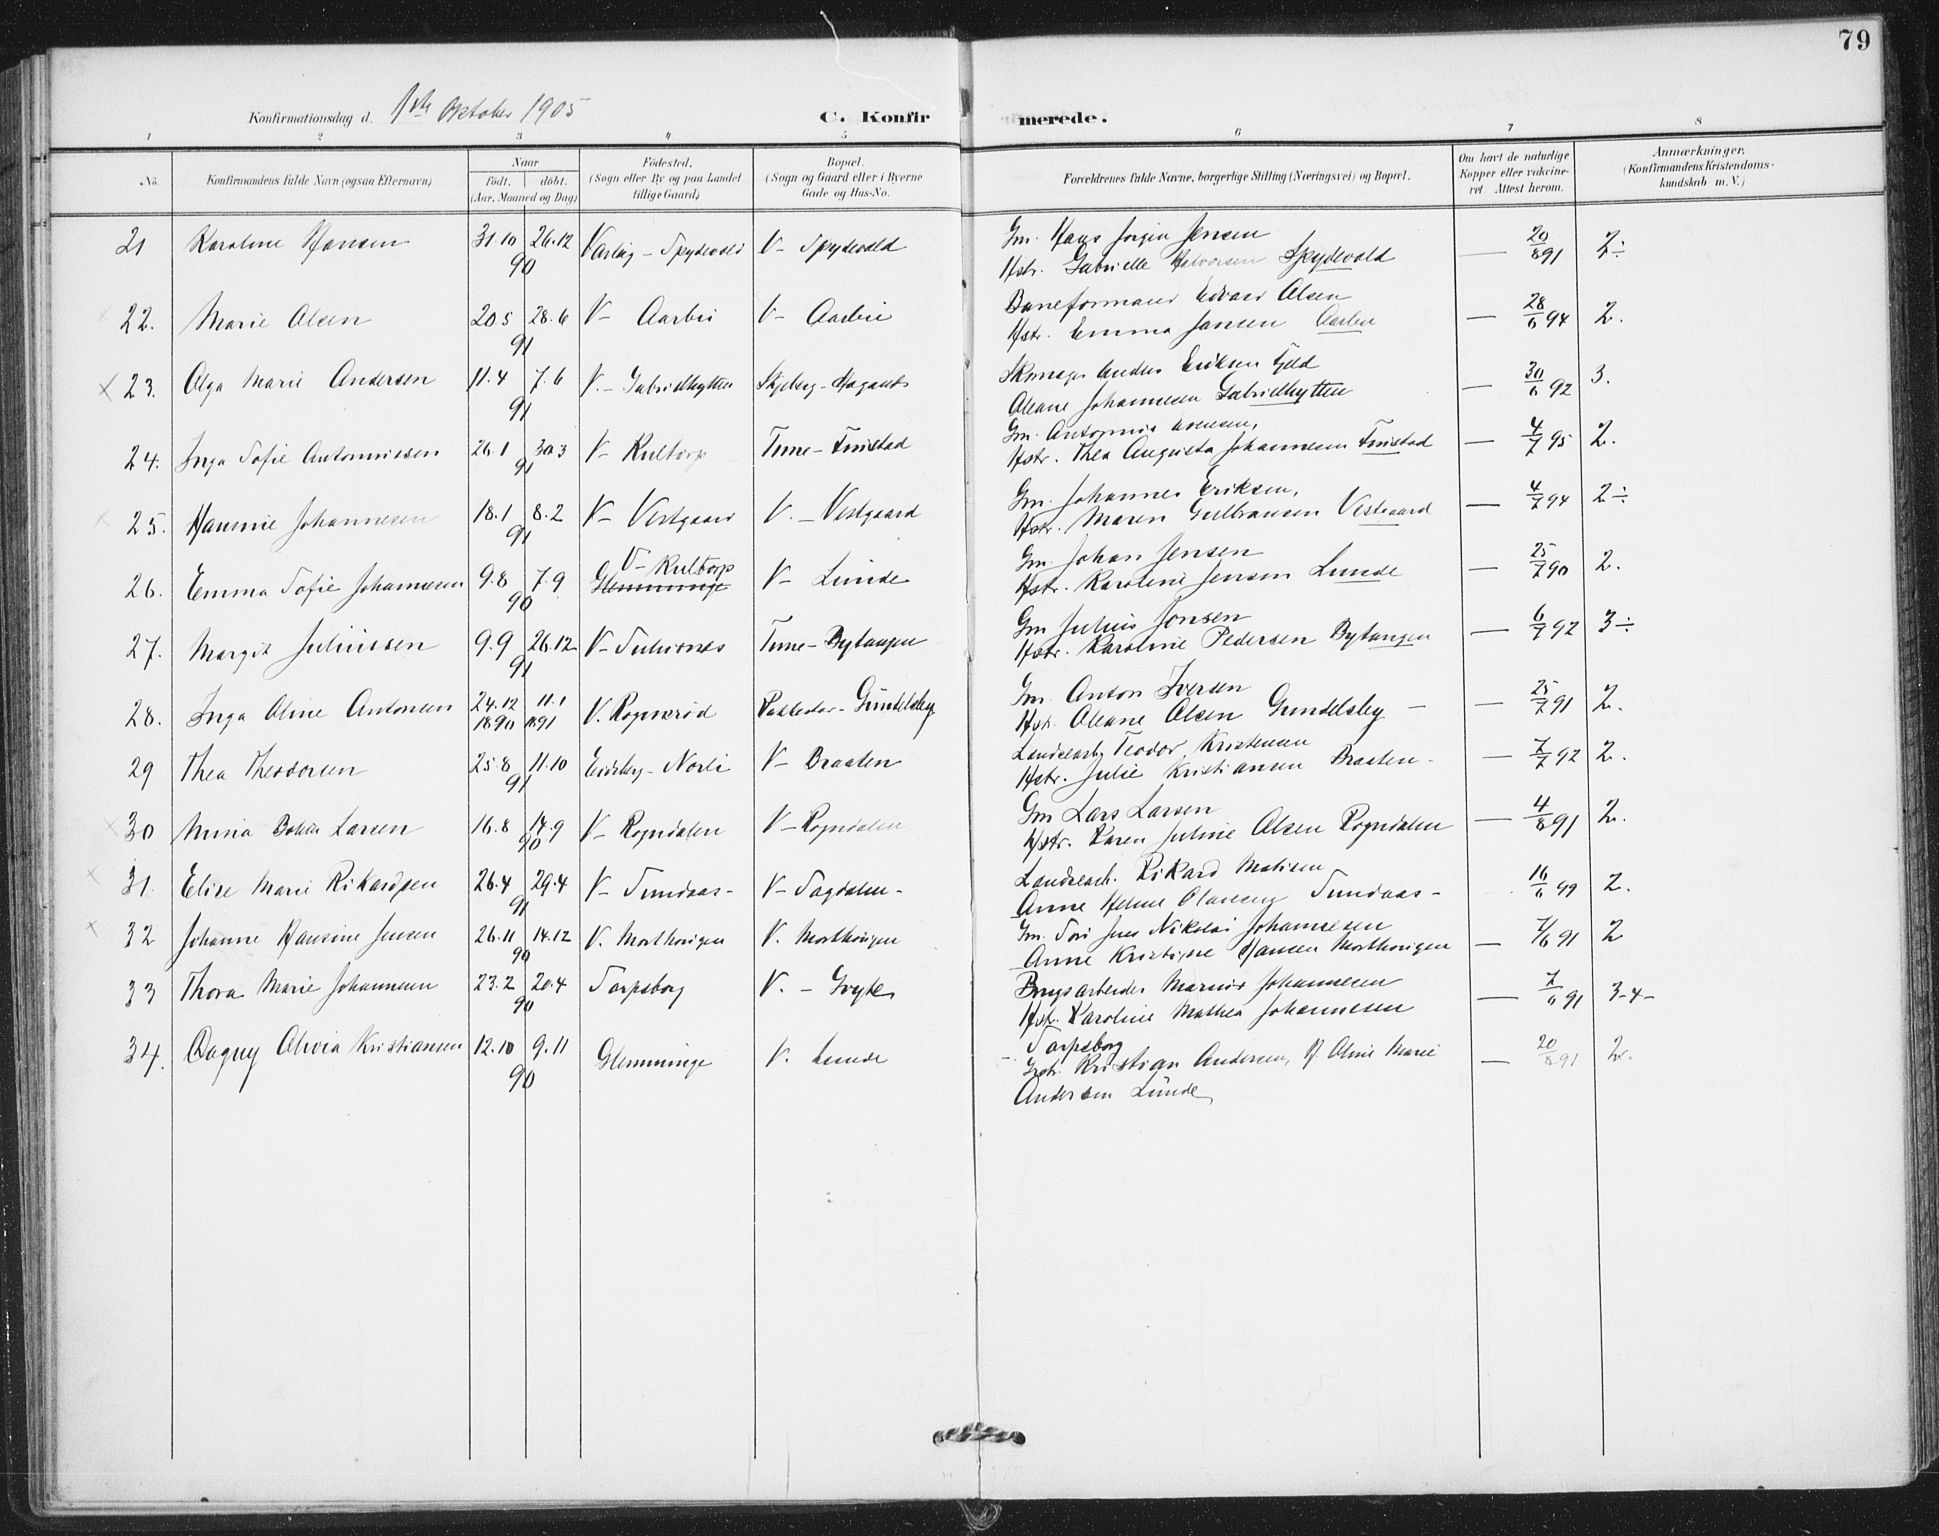 79
Konfirmationsdag d. 1ste Oktober 1905
C. Konfirmerede.
1 2 3 4 5 6 7 8
No.
Konfirmandens fulde Navn (ogsaa Efternavn)
Naar
født. døbt.
(Aar, Maaned og Dag)
Födested.
(Sogn eller By og paa Landet
tillige Gaard)
Bopæl.
(Sogn og Gaard eller i Byerne
Gade og Hus-No.
Forældrenes fulde Navne, borgerlige Stilling (Næringsvei) og Bopæl.
Om havt de naturlige
Kopper eller vakcine-
ret. Attest herom.
Anmærkninger.
(Konfirmandens Kristendoms-
kundskab m. V.)
21 Karoline Hansen 31.10 26.12 90 Varteig - Spydevold V- Spydevold
Gm. Hans Jørgen Jensen
Hstr. Gabrielle Halvorsen Spydevold — 20/8 91 2÷
22. Marie Olsen 20.5 28.6 91 V- Aarbu V- Aarbu
Baneformand Edvard Olsen
Hstr. Emma Jansen — 28/6 94 2.
23. Olga Marie Andersen 11.4 7.6 91 V.- Gabrielhytten Skjeberg-
Skomager Anders Eriksen
Oleane Johannesen Gabrielhytten — 30/6 92 3.
24. Inga Sofie Antonissen 26.1 30.3 91 V- Kultorp Tune- Finstad
Gm.
Hstr. Thea Augusta Johannesen Finstad — 4/7 95 2.
25. Hannie Johannesen 18.1 8.2 91 V- Vestgaard V.- Vestgaard
Gm. Johannes Eriksen,
Hstr. Maren Gulbransen Vestgaard — 4/7 94 2÷
26. Emma Sofie Johannesen 9.8 7.9 90 V- Kultorp Glemminge V- Lunde
Gm. Johan Jensen
Hstr. Karoline Jensen Lunde — 25/7 90 2.
27. Margit Juliussen 9.9 26.12 91 V- Tune- Bytangen
Gm Julius Jonsen
Hstr. Karoline Pedersen Bytangen — 6/7 92 3÷
28. Inga Oline Antonsen 24.12 1890 11.1 1891 V. Rognerød Rakkestad- Gundelsby
Gm. Anton Iversen
Hstr. Oleane Olsen Gundelsby — — 25/7 91 2.
29 Thea Theodorsen 25.8 11.10 91 Eidsberg- Norli V- Braaten
Landsearb. Teodor Kristensen
Hstr. Julie Kristiansen Braaten- — 7/7 92 2.
30 Larsen 16.8 14.9 90 V- Rogndalen V- Rogndalen
Gm Lars Larsen
Hstr. Karen Juline Olsen Rogndalen — 4/8 91 2.
31. Elise Marie Rikardsen 26.4 29.4 91 V- Tunaas- V- Sagdalen-
Landsearb. Rikard
Anne Helene Tunaas- 16/6 99 2.
32 Johanne Hansine Jensen 26.11 14.12 90 V. V.
Gm. Jens Nikolai Johannesen
Anne Kristine Hansen — 7/6 91 2
33 Thora Marie Johannesen 23.2 20.4 90 Sarpsborg V.-
Brugsarbeider Johannesen
Hstr. Karoline Mathea Johannesen — 7/6 91 3-4-
Sarpsborg
34. Dagny Olivia Kristiansen 12.10 9.11 90 Glemminge V. Lunde
Kristian Andersen, Oline Marie
Andersen Lunde — 20/8 91 2.